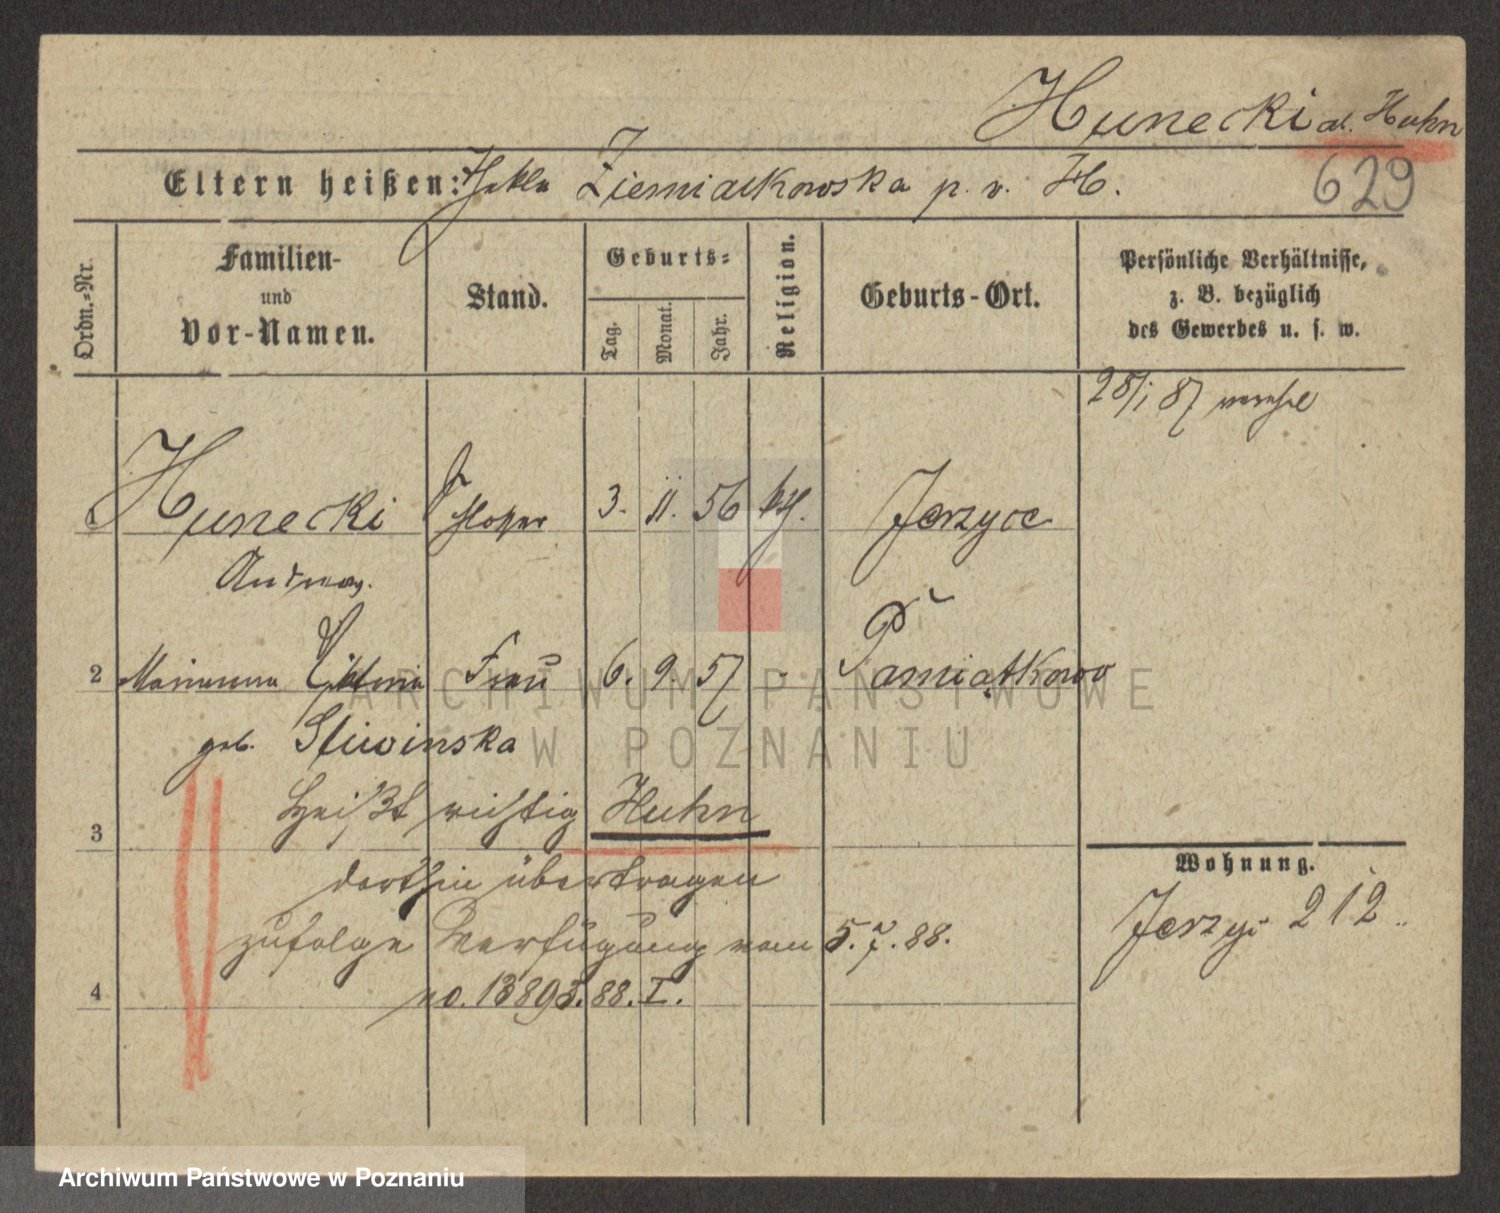 Hunecki al. Huhn
Eltern heißen: Thekla Ziemiatkowska p. v. H.
629
Ordn.-Nr.
Familien-
und
Vor-Namen.
Stand.
Geburts-
Tag.
Monat.
Jahr.
Religion.
Geburts-Ort.
Persönliche Verhältnisse,
z. B. bezüglich
des Gewerbes u. s. w.
28/1 87
1 Hunecki Schlosser 3. 11. 56 kth. Jerzyce
Andreas.
2 Marianna Viktoria Frau 6. 9. 57 - Pamiątkowo
geb. Sliwinska
3 Heißt richtig Huhn
dorthin übertragen
zufolge Verfügung vom 5. 7. 88.
4 no. 13893. 88. I.
Wohnung.
Jerzyc 212
ARCHIWUM PAŃSTWOWE
W POZNANIU
Archiwum Państwowe w Poznaniu